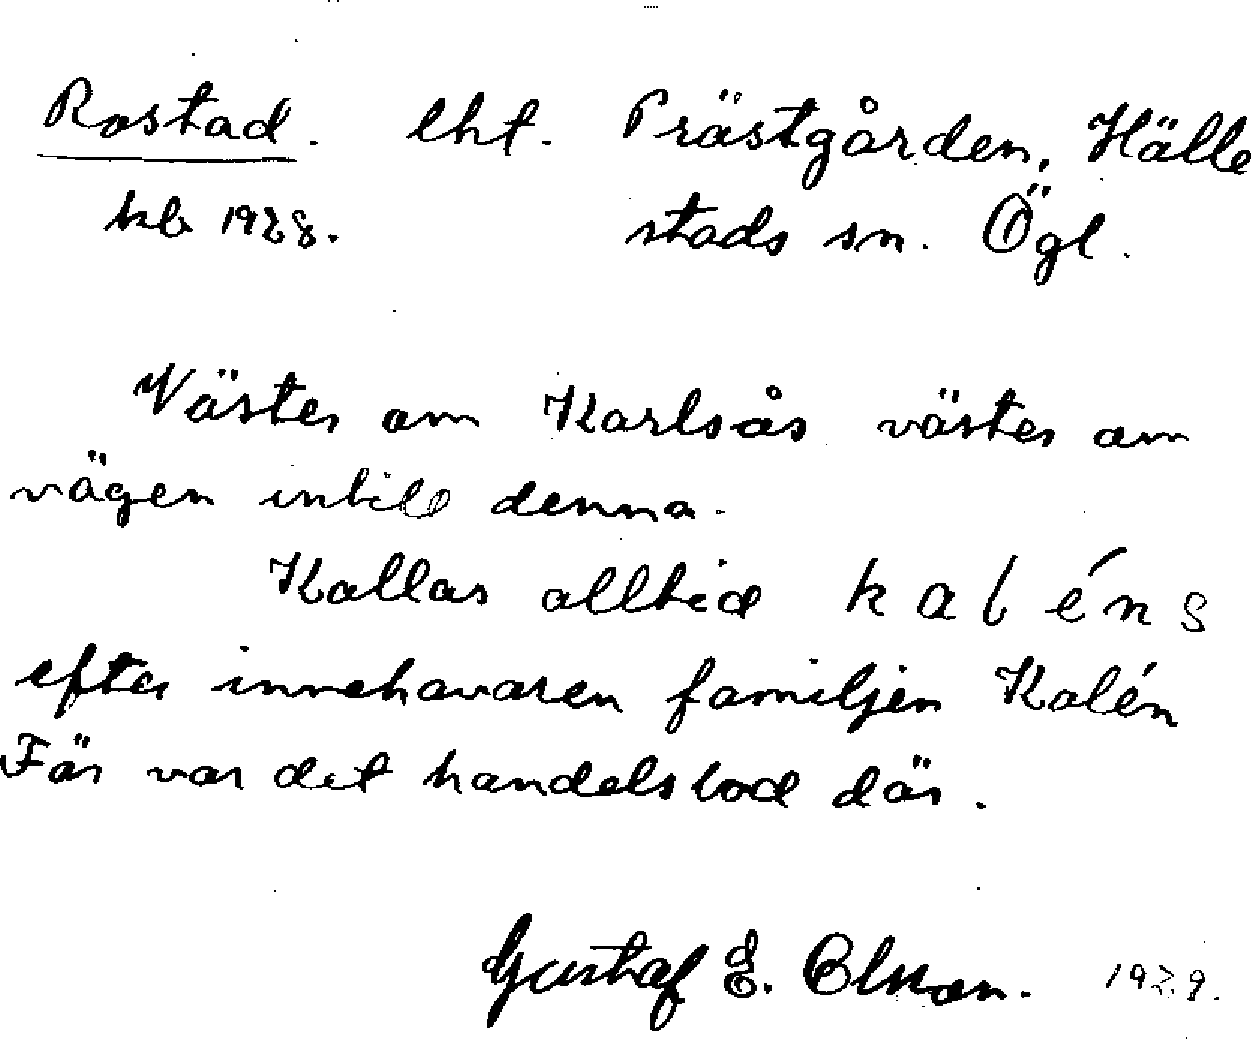 Rostad. lht. Prästgården, Hälle
kb 1928. stads sn. Ögl.
Väster om Karlsås väster om
vägen intill denna.
Kallas alltid kaléns
efter innehavaren familjen Kalén
Här var det handelsbod där.
Gustaf E. Olsson. 1929.